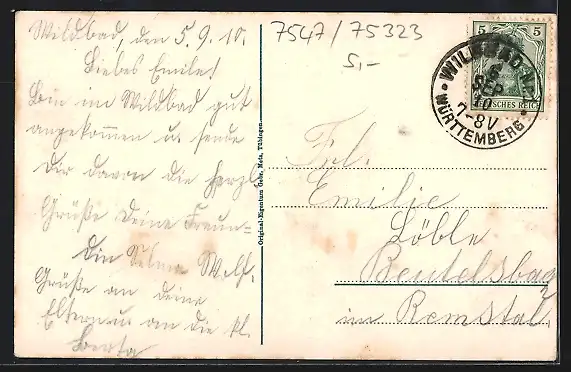 Wildbad, den 5.9.10.
Liebes Emilie!
Bin im Wildbad gut
angekommen u. sende
Dir davon die herzl.
Grüße Deine Freun=
din Selma Wolf.
Grüße an deine
Eltern u. an die kl.
Berta
Original-Eigentum Gebr. Metz, Tübingen
7547/75323
5,-
5 5
DEUTSCHES REICH
WILDBAD
6
SEP
10
7-8V
WÜRTTEMBERG
Frl.
Emilie
Löble
Beutelsbach
im Remstal.